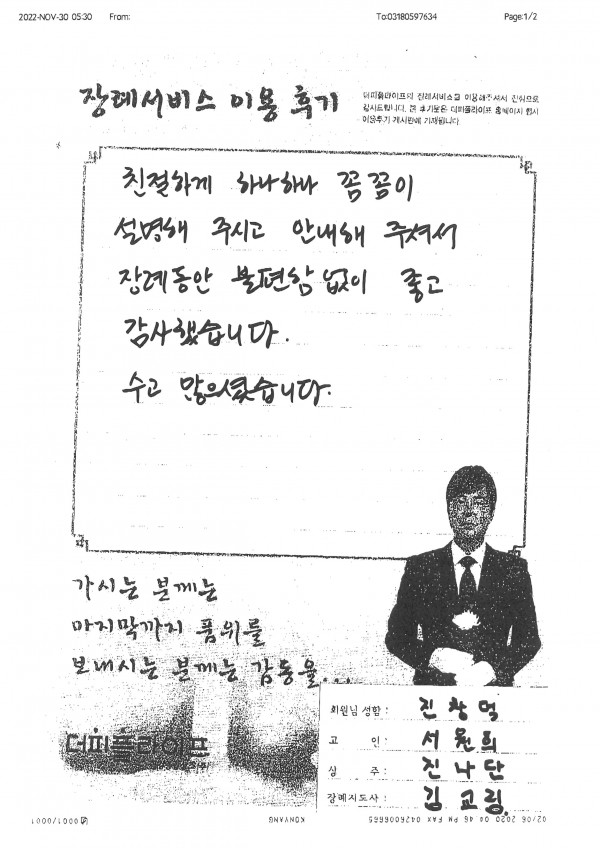 2022-NOV-30 05:30 From: To:03180597634 Page:1/2
장례서비스 이용 후기
더피플라이프의 장례서비스를 이용해주셔서 진심으로
감사드립니다. 본 후기문은 더피플라이프 홈페이지 행사
이용후기 게시판에 기재됩니다
친절하게 하나하나 꼼꼼이
설명해 주시고 안내해 주셔서
장례동안 불편함 없이 좋고
감사했습니다.
수고 많으셨습니다.
가시는 분께는
마지막까지 품위를
보내시는 분께는 감동을...
더피플라이프
회원님 성함 : 진창덕
고 인 : 서원희
상 주 : 진나단
장례지도사 : 김교림.
02/06 2020 04:46 PM FAX 0426006665 KONYANG 0001/0001